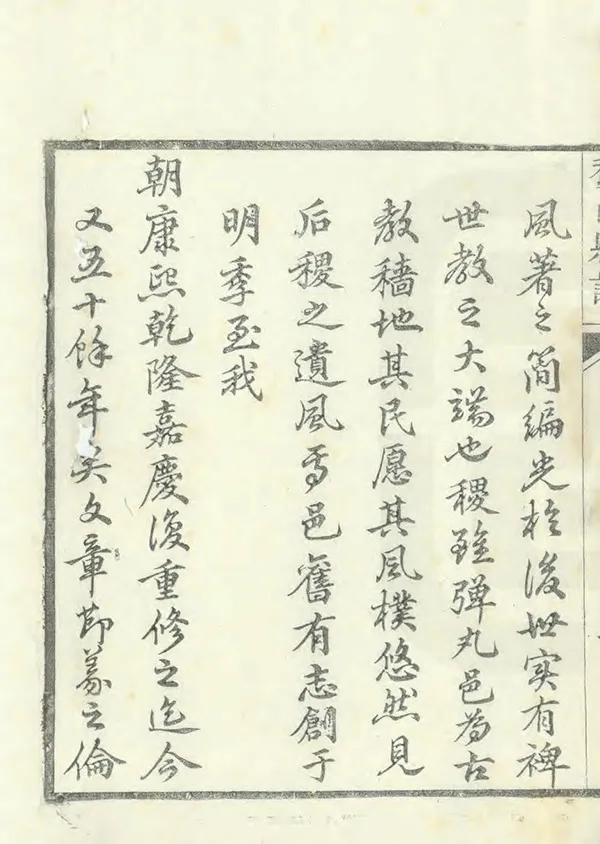 風著之簡編光扵後世实有裨
世教之大端也稷雖弹丸邑為古
教穡地其民愿其風樸悠然見
后稷之遺風焉邑舊有志創于
明季至我
朝康熙乾隆嘉慶復重修之迄今
又五十餘年矣文章節義之倫